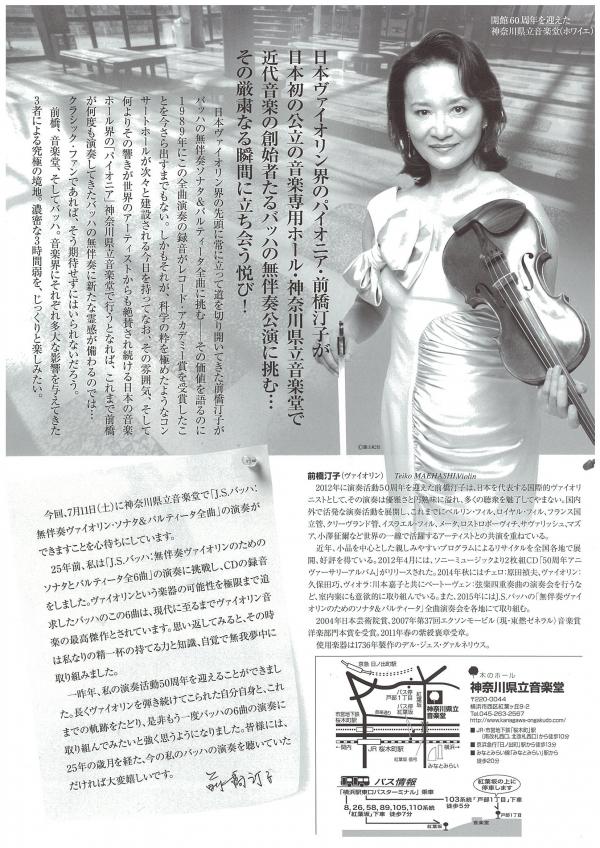 開館60周年を迎えた
神奈川県立音楽堂(ホワイエ)
日本ヴァイオリン界のパイオニア・前橋汀子が
日本初の公立の音楽専用ホール・神奈川県立音楽堂で
近代音楽の創始者たるバッハの無伴奏公演に挑む…
その厳粛なる瞬間に立ち会う悦び!
日本ヴァイオリン界の先頭に常に立って道を切り開いてきた前橋汀子が
バッハの無伴奏ソナタ&パルティータ全曲に挑む――その価値を語るのに
1989年にこの全曲演奏の録音がレコード・アカデミー賞を受賞したこ
とを今さら出すまでもない。しかもそれが、科学の粋を極めたようなコン
サートホールが次々と建設される今日を持ってなお、その雰囲気、そして
何よりその響きが世界のアーティストからも絶賛され続ける日本の音楽
ホール界の「パイオニア」神奈川県立音楽堂で行うとなれば、これまで前橋
が何度も演奏してきたバッハの無伴奏に新たな霊感が備わるのでは…
クラシック・ファンであれば、そう期待せずにはいられないだろう。
前橋、音楽堂、そしてバッハ。音楽界にそれぞれ多大な影響を与えてきた
3者による究極の境地、濃密な3時間弱を、じっくりと楽しみたい。
©篠山紀信
今回、7月11日(土)に神奈川県立音楽堂で「J.S.バッハ:
無伴奏ヴァイオリン・ソナタ&パルティータ全曲」の演奏が
できますことを心待ちにしています。
25年前、私は「J.S.バッハ:無伴奏ヴァイオリンのための
ソナタとパルティータ全6曲」の演奏に挑戦し、CDの録音
をしました。ヴァイオリンという楽器の可能性を極限まで追
求したバッハのこの6曲は、現代に至るまでヴァイオリン音
楽の最高傑作とされています。思い返してみると、その時
は私なりの精一杯の持てる力と知識、自覚で無我夢中に
取り組みました。
一昨年、私の演奏活動50周年を迎えることができまし
た。長くヴァイオリンを弾き続けてこられた自分自身と、これ
までの軌跡をたどり、是非もう一度バッハの6曲の演奏に
取り組んでみたいと強く思うようになりました。皆様には、
25年の歳月を経た、今の私のバッハの演奏を聴いていた
だければ大変嬉しいです。
前橋汀子
前橋汀子(ヴァイオリン) Teiko MAEHASHI,Violin
2012年に演奏活動50周年を迎えた前橋汀子は、日本を代表する国際的ヴァイオ
リニストとして、その演奏は優雅さと円熟味に溢れ、多くの聴衆を魅了してやまない。国内
外で活発な演奏活動を展開し、これまでにベルリン・フィル、ロイヤル・フィル、フランス国
立管、クリーヴランド管、イスラエル・フィル、メータ、ロストロポーヴィチ、サヴァリッシュ、マズ
ア、小澤征爾など世界の一線で活躍するアーティストとの共演を重ねている。
近年、小品を中心とした親しみやすいプログラムによるリサイタルを全国各地で展
開、好評を得ている。2012年4月には、ソニーミュージックより2枚組CD「50周年アニ
ヴァーサリーアルバム」がリリースされた。2014年秋にはチェロ:原田禎夫、ヴァイオリン:
久保田巧、ヴィオラ:川本嘉子と共にベートーヴェン:弦楽四重奏曲の演奏会を行うな
ど、室内楽にも意欲的に取り組んでいる。また、2015年にはJ.S.バッハの「無伴奏ヴァイ
オリンのためのソナタ&パルティータ」全曲演奏会を各地にて取り組む。
2004年日本芸術院賞、2007年第37回エクソンモービル(現・東燃ゼネラル)音楽賞
洋楽部門本賞を受賞。2011年春の紫綬褒章受章。
使用楽器は1736年製作のデル・ジェス・グァルネリウス。
京急 日ノ出町駅
バス停
戸部1丁目
紅葉坂
神奈川県立
音楽堂
市営地下鉄
桜木町駅
音楽通り
バス停
紅葉坂
←関内
JR 桜木町駅
横浜→
紅葉坂 信号
みなとみらい
木のホール
神奈川県立音楽堂
〒220-0044
横浜市西区紅葉ヶ丘9-2
Tel.045-263-2567
http://www.kanagawa-ongakudo.com/
■JR・市営地下鉄「桜木町」駅
(南改札西口、主改札西口)から徒歩10分
■京浜急行「日ノ出町」駅から徒歩13分
■みなとみらい線「みなとみらい」駅から
徒歩20分
バス情報
「横浜駅東口バスターミナル」乗車
8,26,58,89,105,110系統
「紅葉坂」下車 徒歩7分
103系統「戸部1丁目」下車
徒歩5分
紅葉坂の上に
停車します
紅葉坂
音楽堂
戸部1丁目